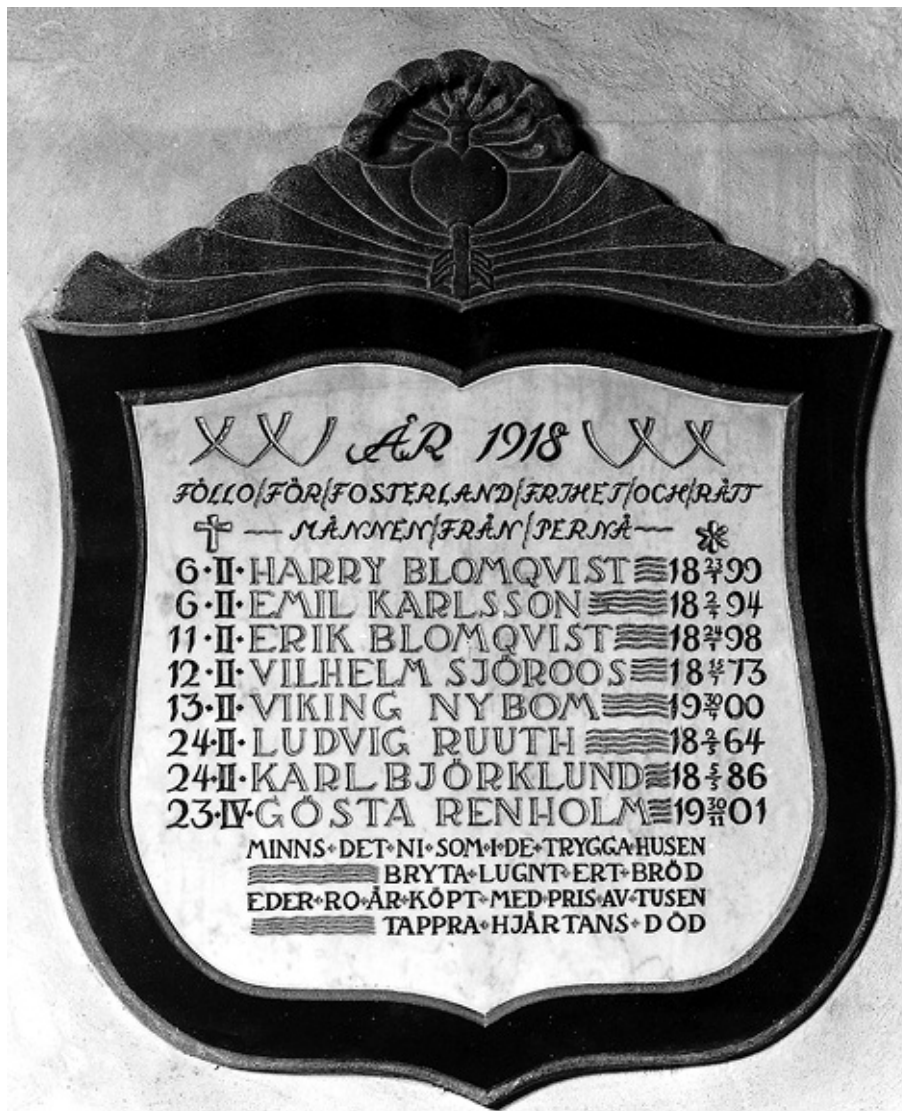 ÅR 1918
FÖLLO/FÖR/FOSTERLAND/FRIHET/OCH/RÄTT
MÄNNEN/FRÅN/PERNÅ
6·II·HARRY BLOMQVIST 18 23/1 99
6·II·EMIL KARLSSON 18 2/4 94
11·II·ERIK BLOMQVIST 18 24/1 98
12·II·VILHELM SJÖROOS 18 73
13·II·VIKING NYBOM 19 30/4 00
24·II·LUDVIG RUUTH 18 9/5 64
24·II·KARL BJÖRKLUND 18 5/5 86
23·IV·GÖSTA RENHOLM 19 30/11 01
MINNS·DET·NI·SOM·I·DE·TRYGGA·HUSEN
BRYTA·LUGNT·ERT·BRÖD
EDER·RO·ÄR·KÖPT·MED·PRIS·AV·TUSEN
TAPPRA·HJÄRTANS·DÖD